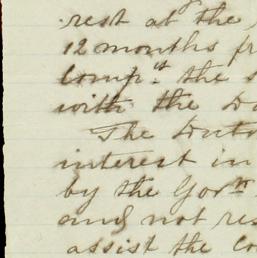 rest at the
12 months
Comp.y the
with the
The
interest in
by the Gov.r
and not
assist the